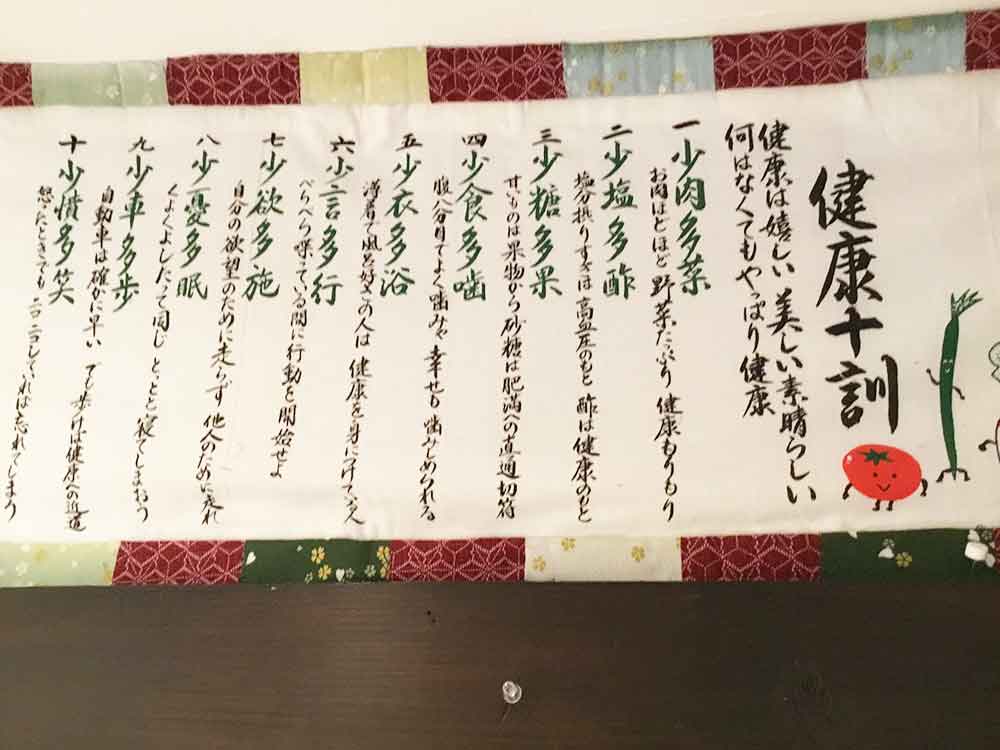 健康十訓
健康は嬉しい 美しい 素晴らしい
何はなくてもやっぱり健康
一 少肉多菜
お肉はほどほど 野菜たっぷり 健康もりもり
二 少塩多酢
塩分摂りすぎは 高血圧のもと 酢は健康のもと
三 少糖多果
甘いものは果物から 砂糖は肥満への直通切符
四 少食多噛
腹八分目でよく噛みゃ 幸せも噛みしめられる
五 少衣多浴
薄着で風呂好きの人は 健康を身につけている人
六 少言多行
べらべら喋っている間に行動を開始せよ
七 少欲多施
自分の欲望のために走らず 他人のために走れ
八 少憂多眠
くよくよしたって同じ とっとと寝てしまおう
九 少車多歩
自動車は確かに早い でも歩けば健康への近道
十 少憤多笑
怒ったときでも ニコニコしていれば忘れてしまう